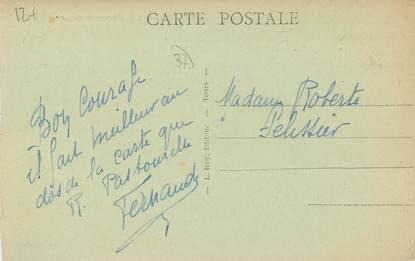 12+
CARTE POSTALE
37
Bon Courage
il fait meilleur au
dos de la carte que
R. Pastourelle
Fernande
L. Roy, Editeur — Tours —
Madame Roberte
Pelissier